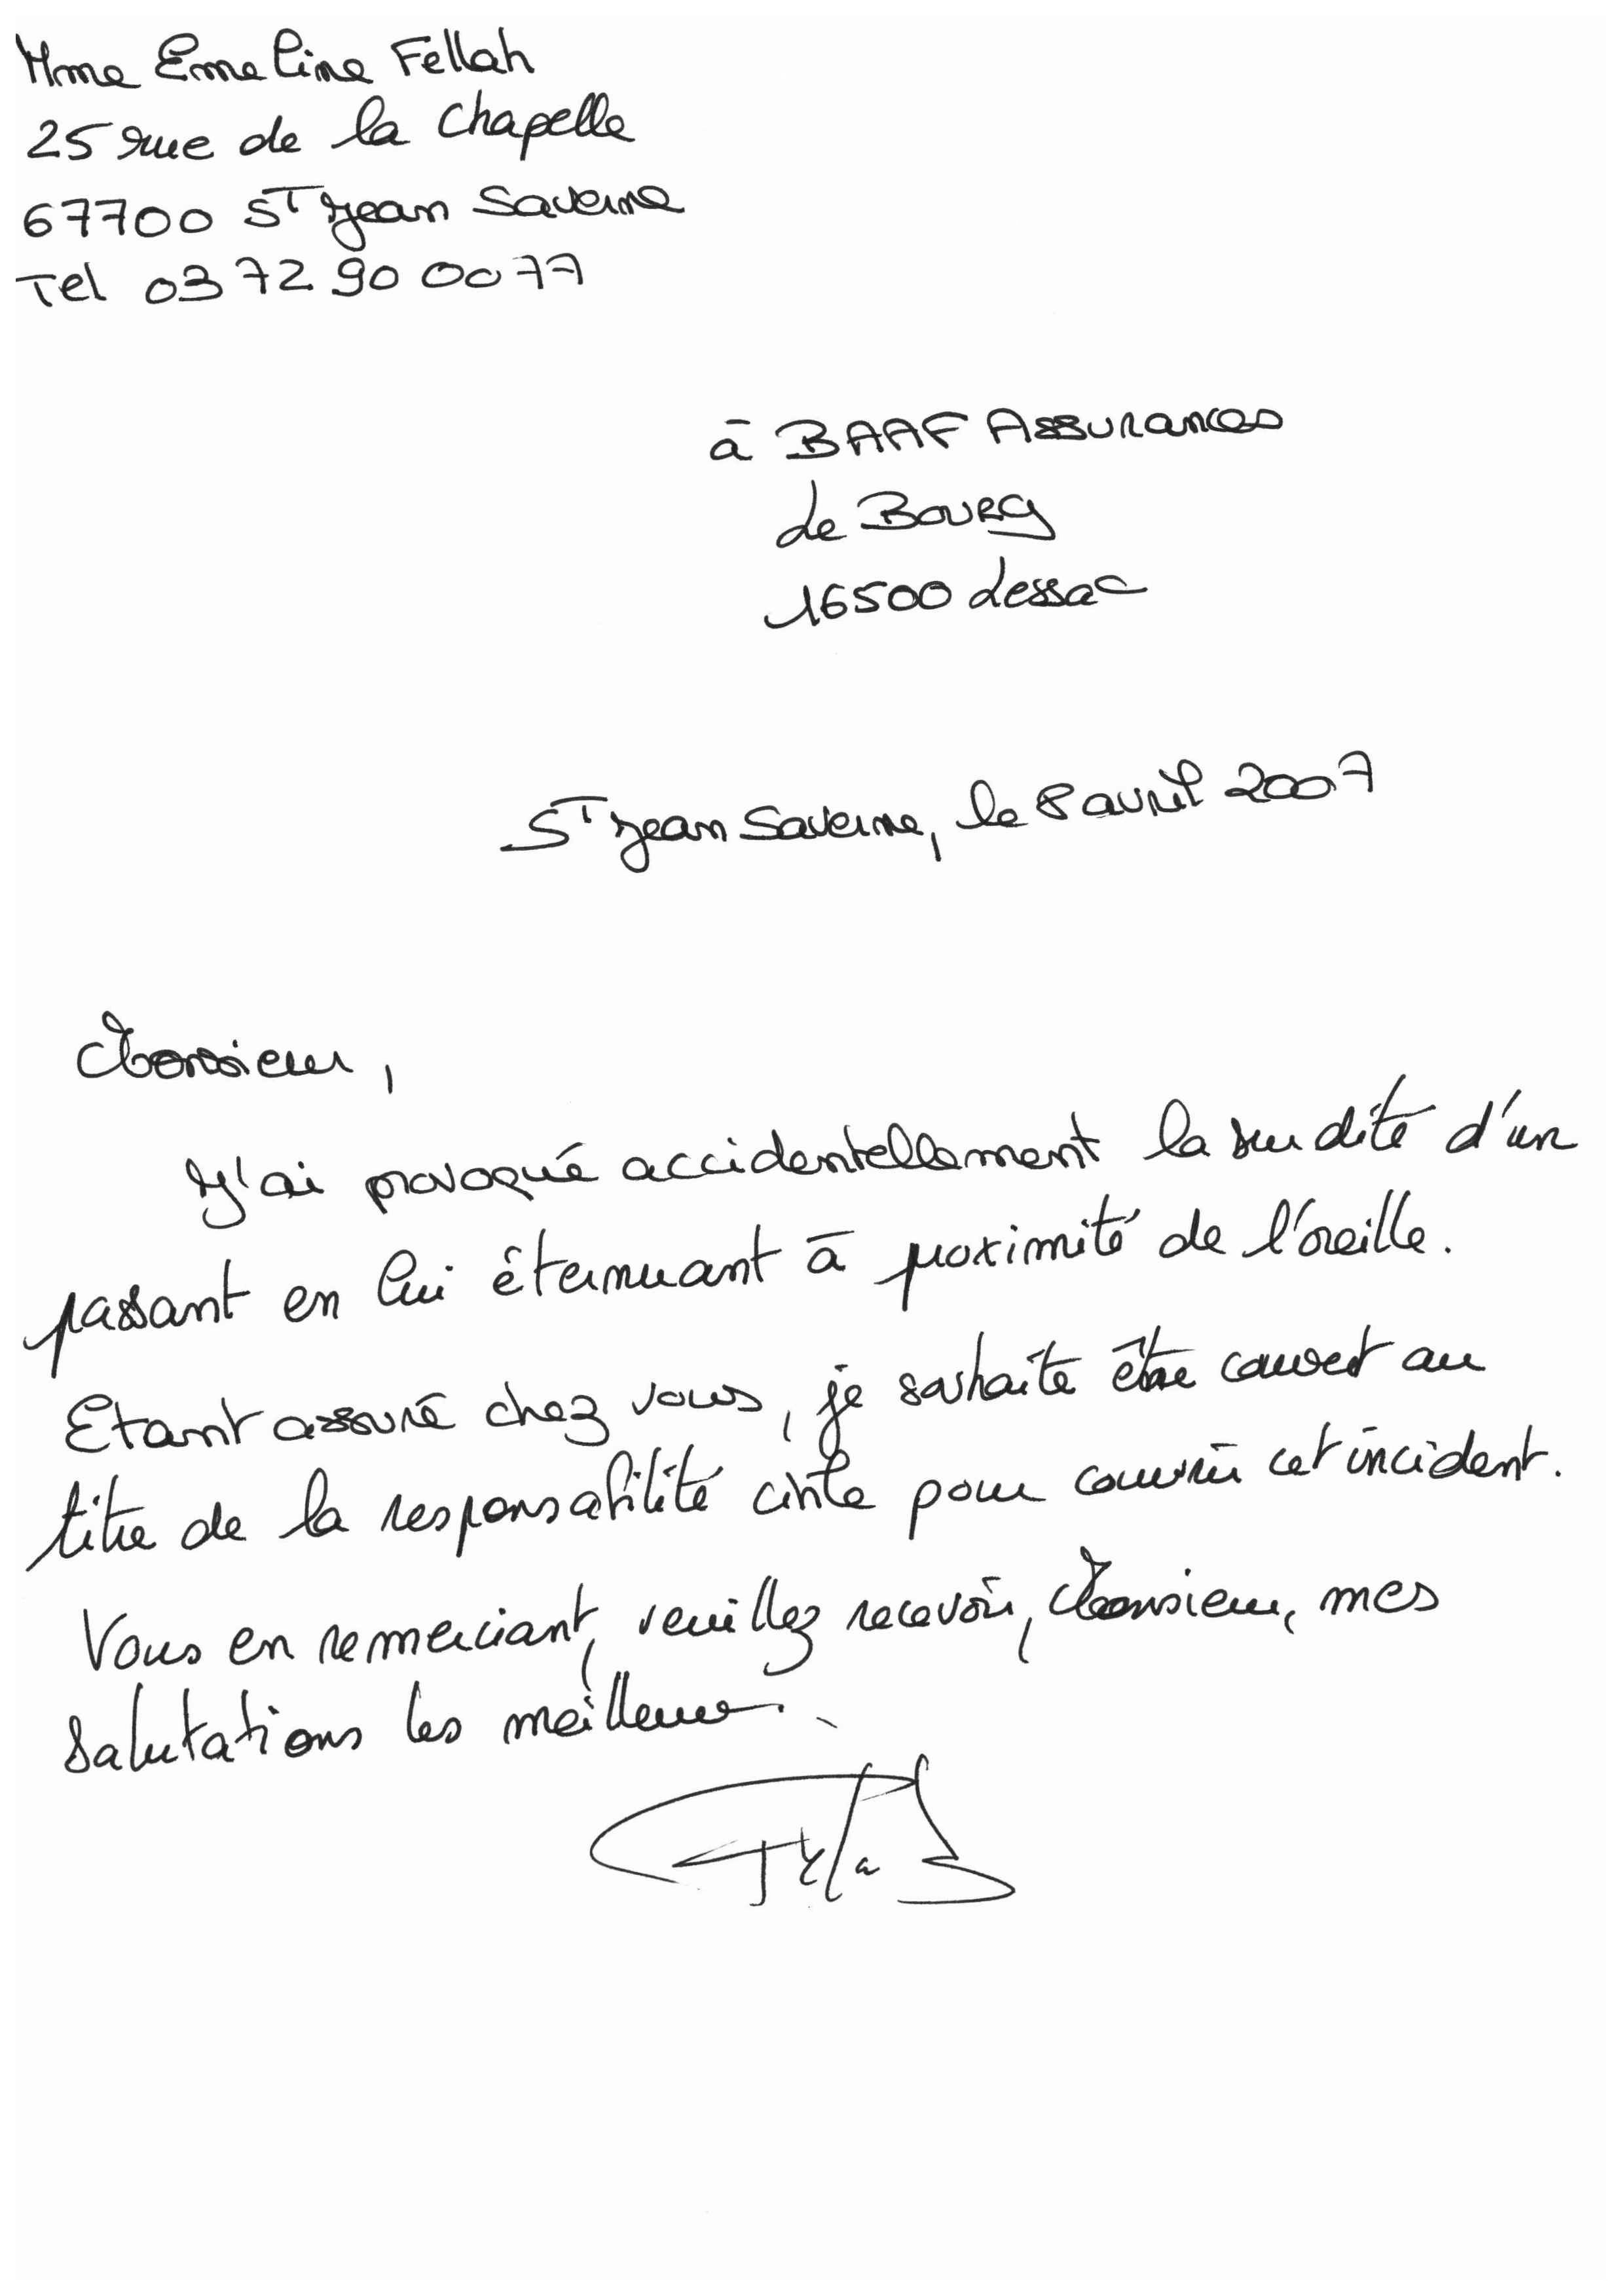 Mme Emeline Fellah
25 rue de la chapelle
67700 St Jean Saverne
Tel 03 72 90 00 77
à BAAF Assurances
Le Bourg
16500 Lessac
St Jean Saverne, le 8 avril 2007
Monsieur,
J'ai provoqué accidentellement la surdité d'un
passant en lui éternuant à proximité de l'oreille.
Etant assuré chez vous, je souhaite être couvert au
titre de la responsabilité civile pour couvrir cet incident.
Vous en remerciant, veuillez recevoir, Monsieur, mes
salutations les meilleures.